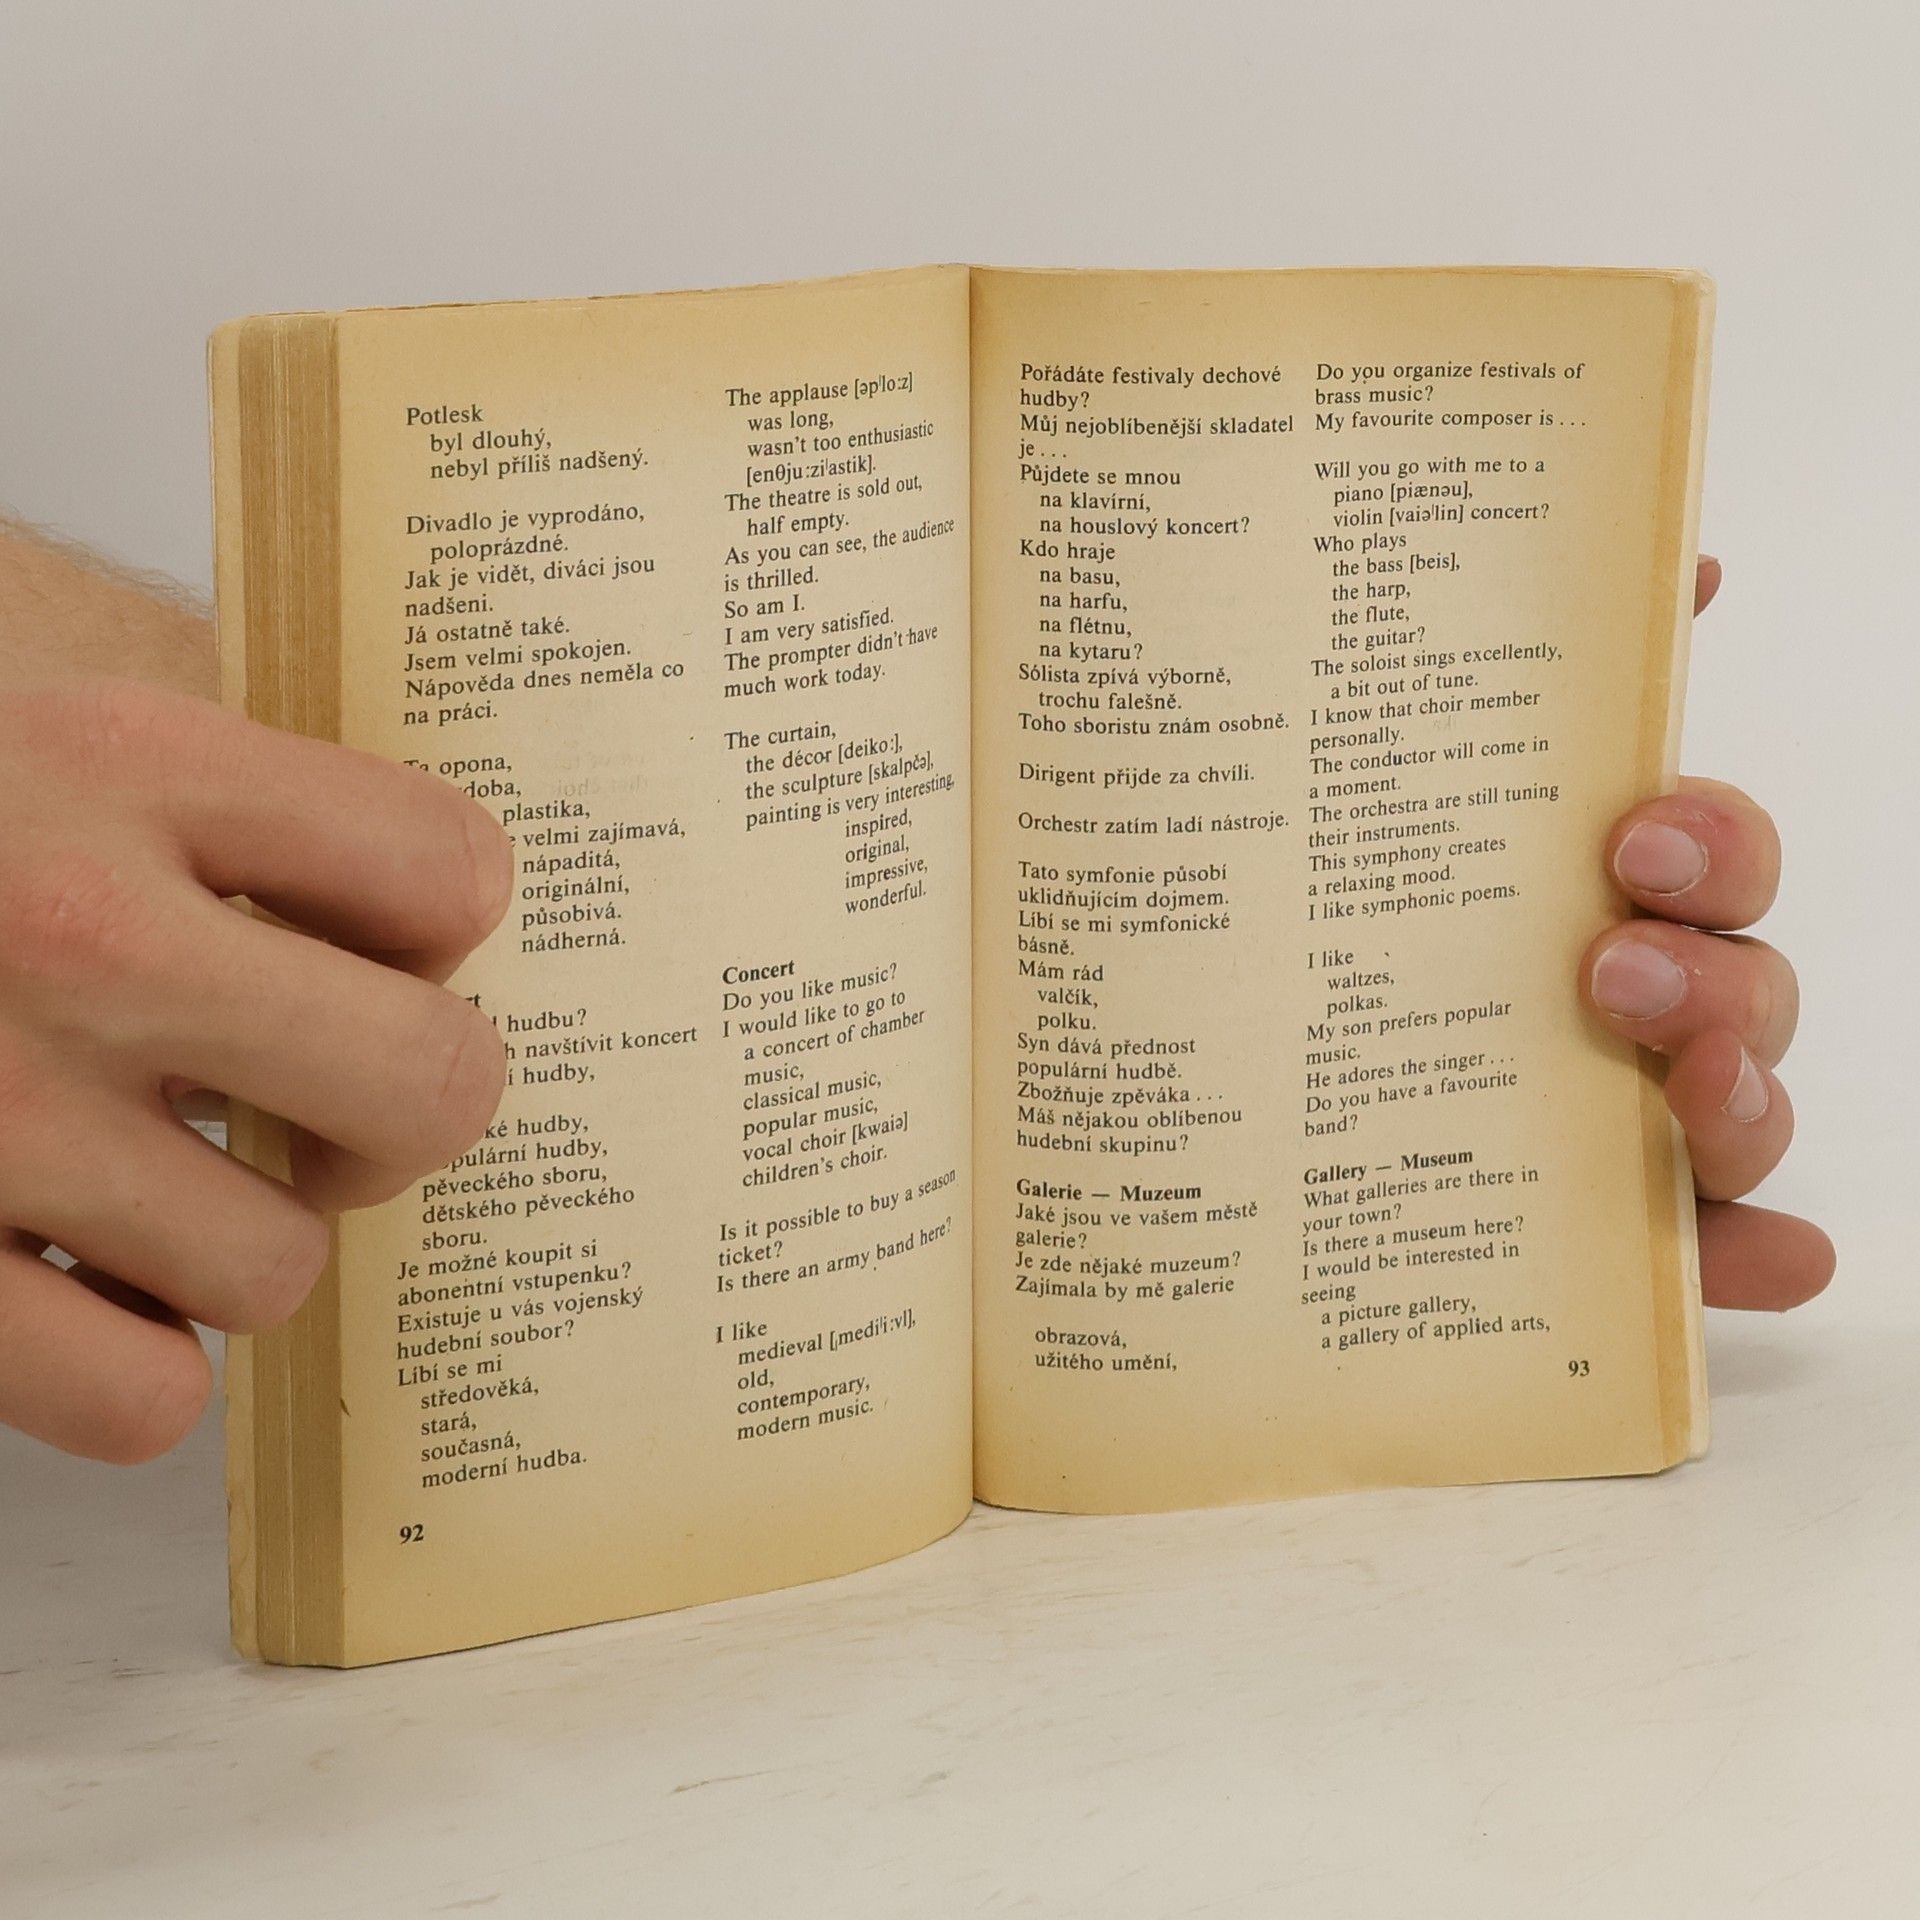 Potlesk
byl dlouhý,
nebyl příliš nadšený.
Divadlo je vyprodáno,
poloprázdné.
Jak je vidět, diváci jsou
nadšeni.
Já ostatně také.
Jsem velmi spokojen.
Nápověda dnes neměla co
na práci.
opona,
plastika,
velmi zajímavá,
nápaditá,
originální,
působivá.
nádherná.
hudbu?
navštívit koncert
hudby,
hudby,
pěveckého sboru,
dětského pěveckého
sboru.
Je možné koupit si
abonentní vstupenku?
Existuje u vás vojenský
hudební soubor?
Líbí se mi
středověká,
stará,
současná,
moderní hudba.
92
The applause [əpˈlo:z]
was long,
wasn't too enthusiastic
[enθju:ziˈastik].
The theatre is sold out,
half empty.
As you can see, the audience
is thrilled.
So am I.
I am very satisfied.
The prompter didn't have
much work today.
The curtain,
the décor [deiko:],
the sculpture [skalpčə],
painting is very interesting,
inspired,
original,
impressive,
wonderful.
Concert
Do you like music?
I would like to go to
a concert of chamber
music,
classical music,
popular music,
vocal choir [kwaiə]
children's choir.
Is it possible to buy a season
ticket?
Is there an army band here?
I like
medieval [ˌmediˈi:vl],
old,
contemporary,
modern music.
Pořádáte festivaly dechové
hudby?
Můj nejoblíbenější skladatel
je...
Půjdete se mnou
na klavírní,
na houslový koncert?
Kdo hraje
na basu,
na harfu,
na flétnu,
na kytaru?
Sólista zpívá výborně,
trochu falešně.
Toho sboristu znám osobně.
Dirigent přijde za chvíli.
Orchestr zatím ladí nástroje.
Tato symfonie působí
uklidňujícím dojmem.
Líbí se mi symfonické
básně.
Mám rád
valčík,
polku.
Syn dává přednost
populární hudbě.
Zbožňuje zpěváka...
Máš nějakou oblíbenou
hudební skupinu?
Galerie — Muzeum
Jaké jsou ve vašem městě
galerie?
Je zde nějaké muzeum?
Zajímala by mě galerie
obrazová,
užitého umění,
Do you organize festivals of
brass music?
My favourite composer is...
Will you go with me to a
piano [piænəu],
violin [vaiəˈlin] concert?
Who plays
the bass [beis],
the harp,
the flute,
the guitar?
The soloist sings excellently,
a bit out of tune.
I know that choir member
personally.
The conductor will come in
a moment.
The orchestra are still tuning
their instruments.
This symphony creates
a relaxing mood.
I like symphonic poems.
I like
waltzes,
polkas.
My son prefers popular
music.
He adores the singer...
Do you have a favourite
band?
Gallery — Museum
What galleries are there in
your town?
Is there a museum here?
I would be interested in
seeing
a picture gallery,
a gallery of applied arts,
93